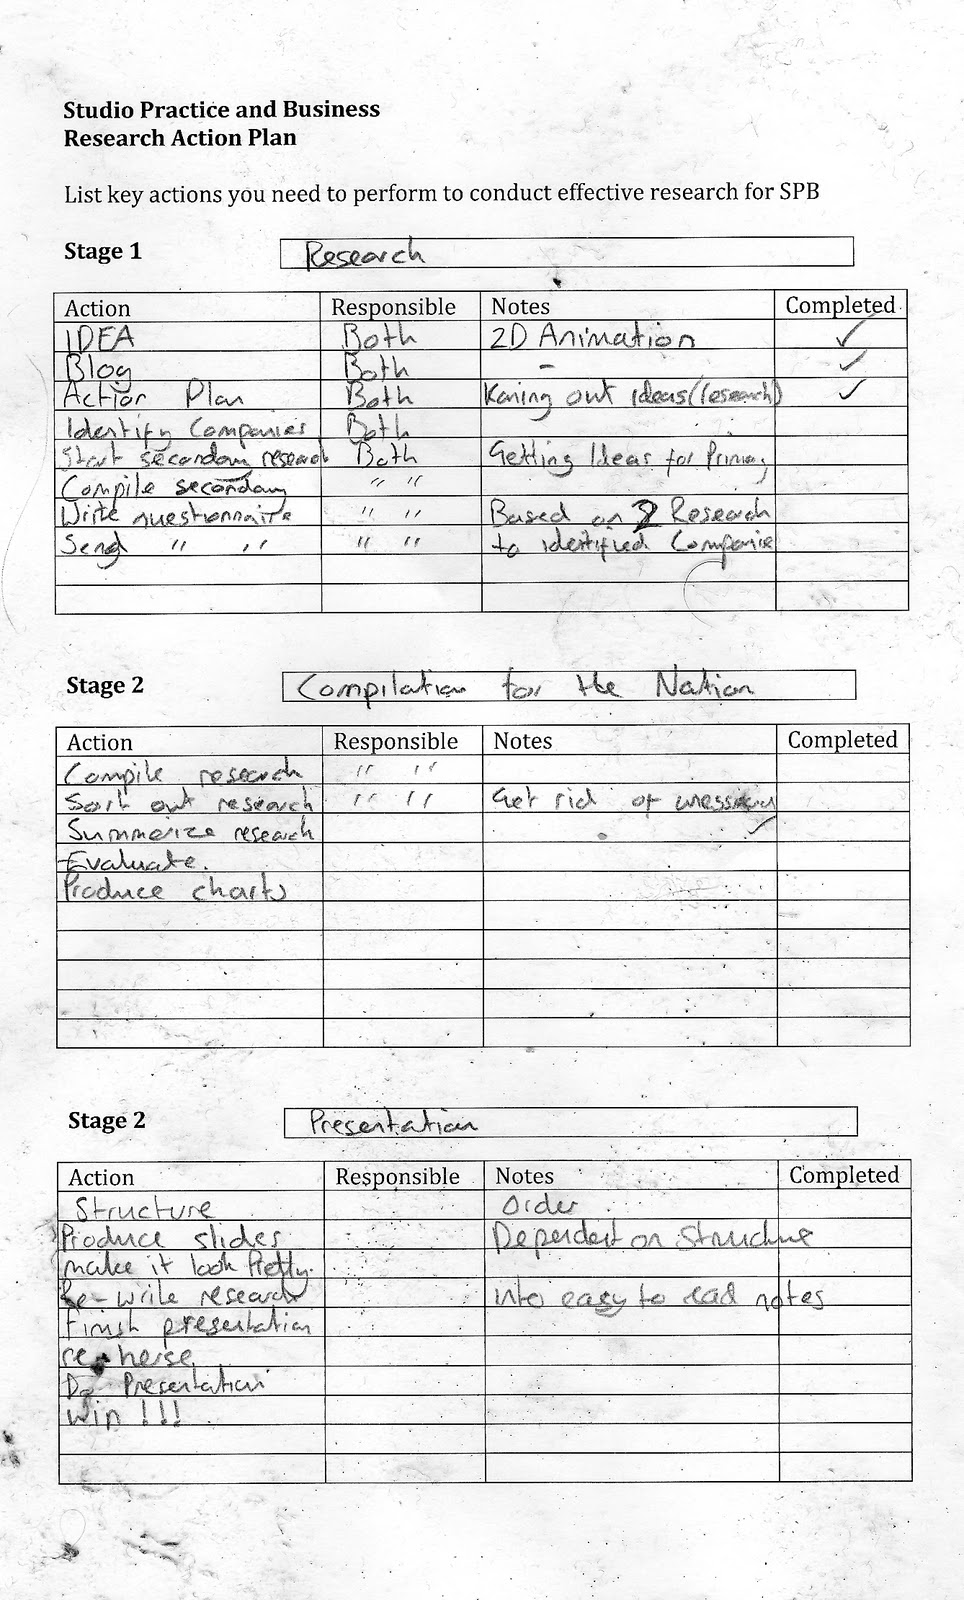 Studio Practice and Business
Research Action Plan
List key actions you need to perform to conduct effective research for SPB
Stage 1 Research
Action Responsible Notes Completed
IDEA Both 2D Animation ✓
Blog Both - ✓
Action Plan Both out ideas (research) ✓
Identify Companies Both
Start secondary research Both Getting Ideas for Primary
Compile secondary " "
Write questionnaire " " Based on 2 Research
Send " " " " to identified Companie
Stage 2 Compilation for the Nation
Action Responsible Notes Completed
Compile research " "
Sort out research " " Get rid of
Summerize research ✓
Evaluate.
Produce charts
Stage 2 Presentation
Action Responsible Notes Completed
Structure Order
Produce slides Dependent on Structure
make it look Pretty.
Re-write research into easy to read notes
Finish presentation
re-herse
Do Presentation
Win !!!